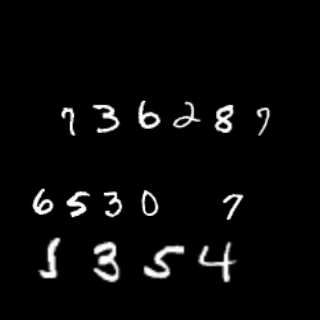 7 3 6 2 8 7
6 5 3 0 7
1 3 5 4